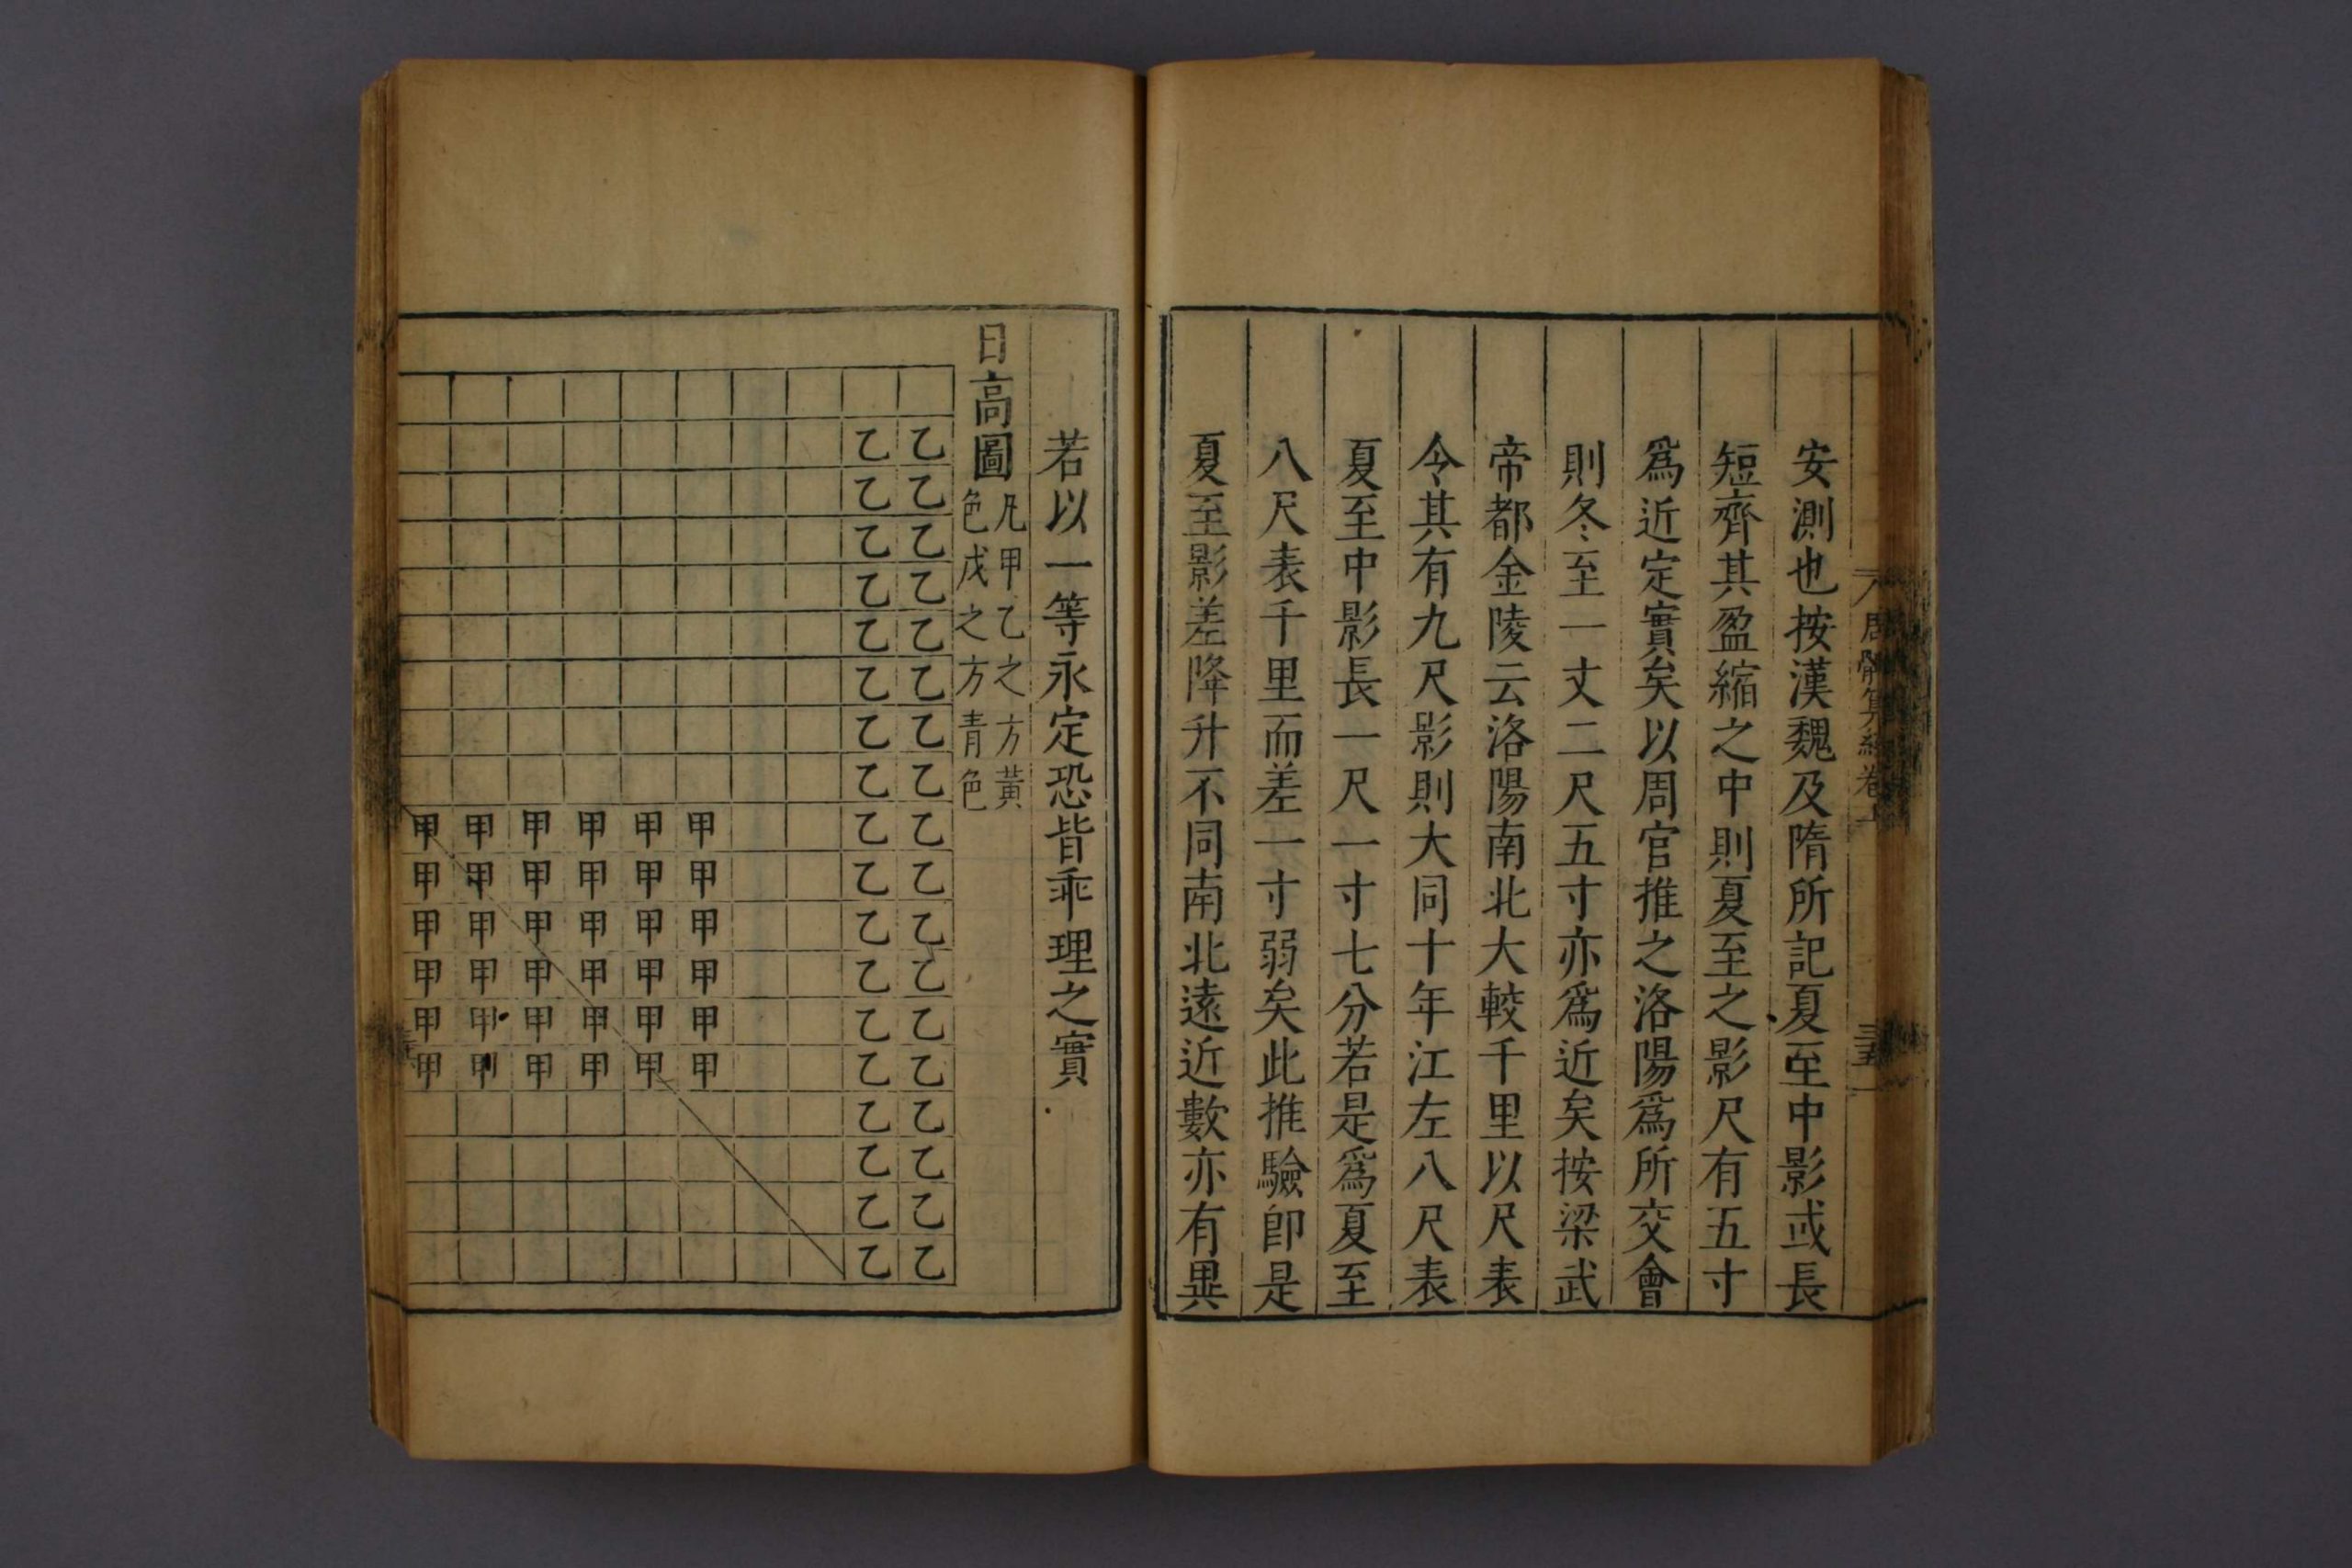 周髀算經卷上
安測也按漢魏及隋所記夏至中影或長
短齊其盈縮之中則夏至之影尺有五寸
爲近定實矣以周官推之洛陽爲所交會
則冬至一丈二尺五寸亦爲近矣按梁武
帝都金陵云洛陽南北大較千里以尺表
令其有九尺影則大同十年江左八尺表
夏至中影長一尺一寸七分若是爲夏至
八尺表千里而差一寸弱矣此推驗即是
夏至影差降升不同南北遠近數亦有異
若以一等永定恐皆乖理之實
日高圖
凡甲乙之方黃
色戊之方青色
乙乙乙乙乙乙乙乙乙乙乙乙乙乙乙乙乙乙
乙乙乙乙乙乙乙乙乙乙乙乙乙乙乙乙乙乙
甲甲甲甲甲甲
甲甲甲甲甲甲
甲甲甲甲甲甲
甲甲甲甲甲甲
甲甲甲甲甲甲
甲甲甲甲甲甲